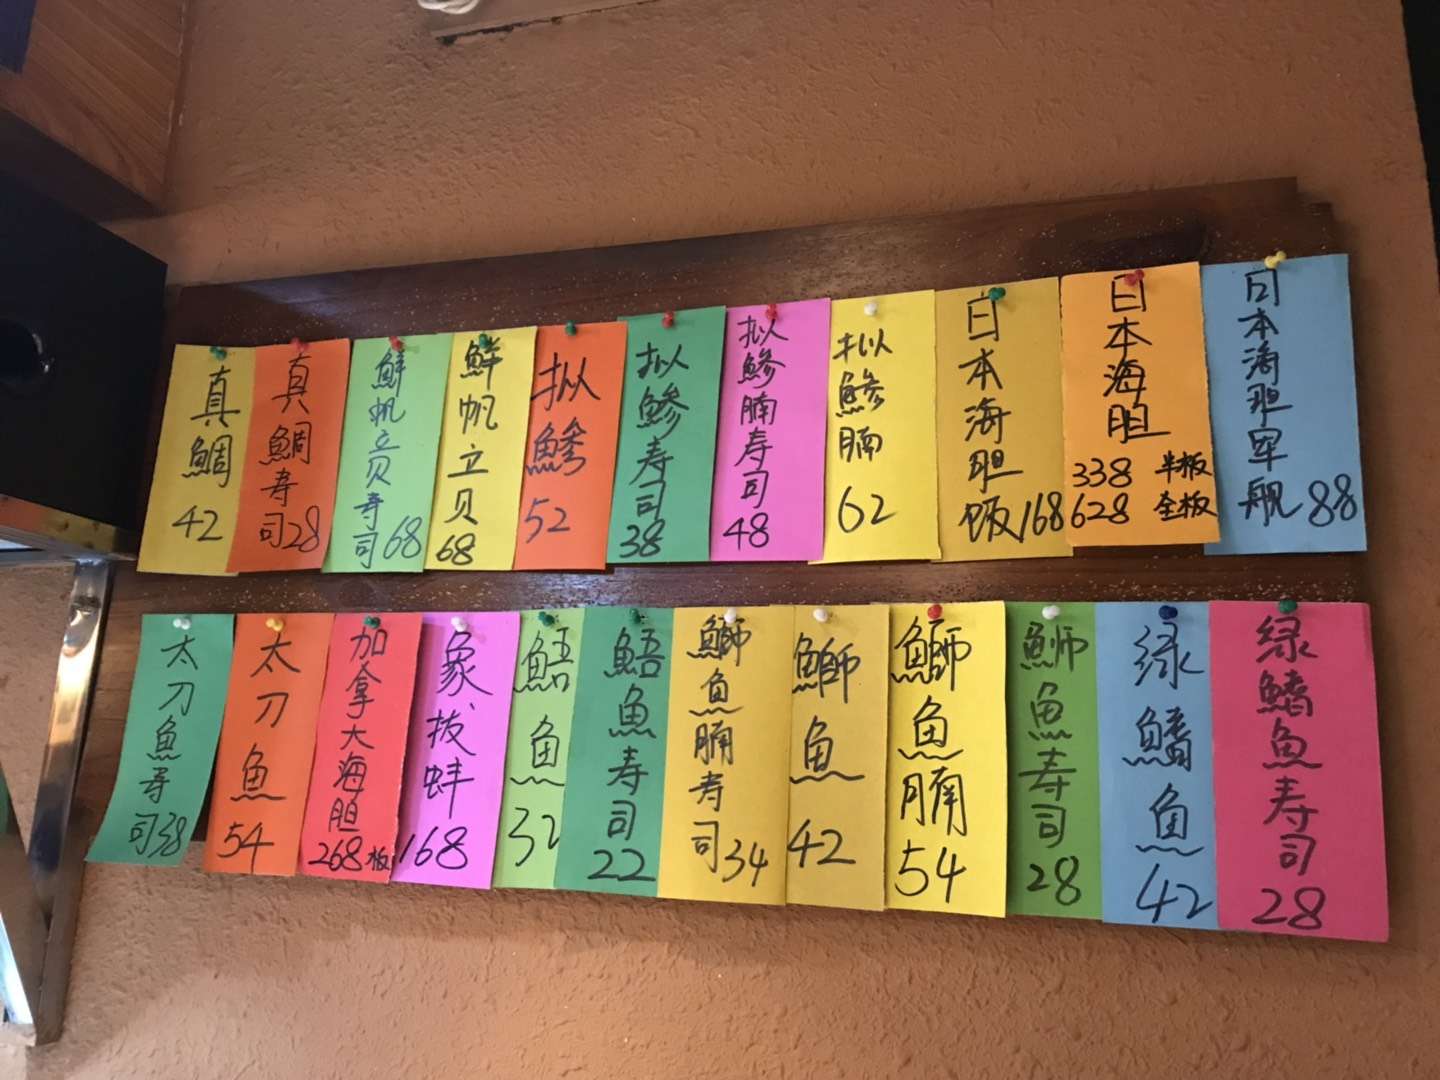 真鯛
42
真鯛寿司28
鮮帆立贝寿司68
鮮帆立贝
68
拟鰺
52
拟鰺寿司
38
拟鰺腩寿司
48
拟鰺腩
62
日本海胆饭168
日本海胆
338 半板
628 全板
日本海胆军舰88
太刀魚寿司38
太刀魚
54
加拿大海胆
268板
象拔蚌
168
鯃魚
32
鯃魚寿司
22
鰤魚腩寿司34
鰤魚
42
鰤魚腩
54
鰤魚寿司
28
绿鱔魚
42
绿鱔魚寿司
28